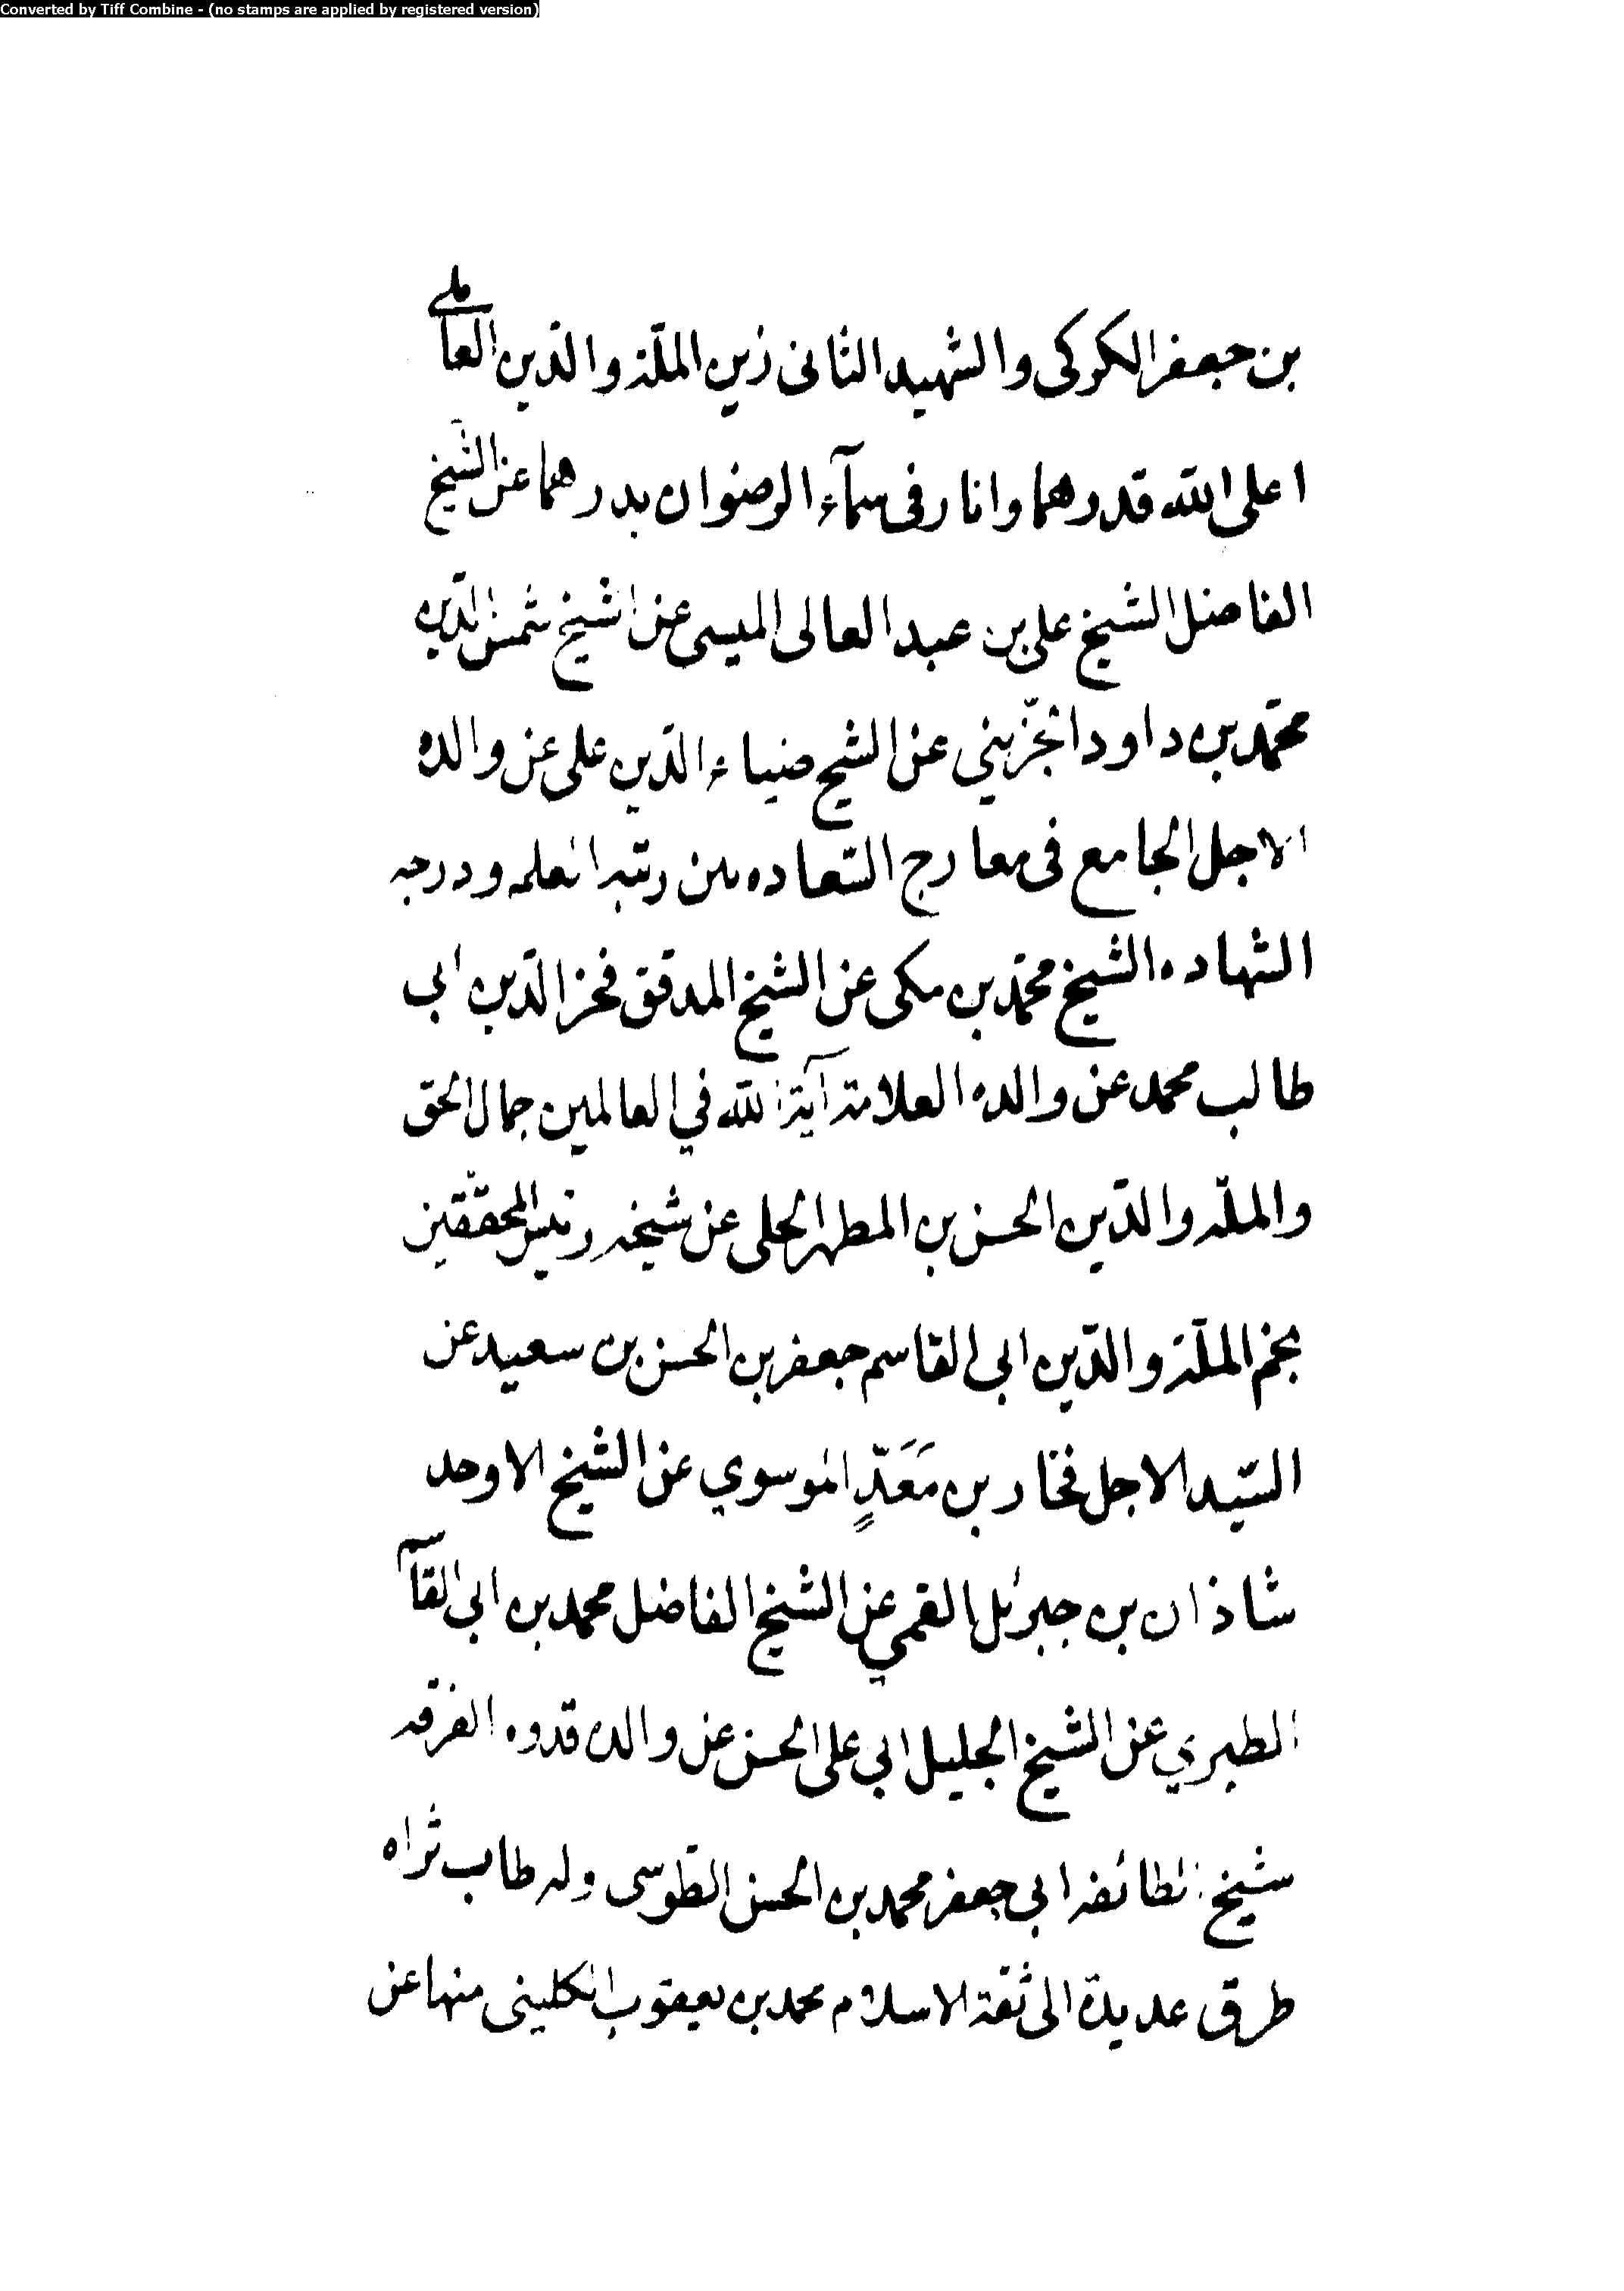 Converted by Tiff Combine - (no stamps are applied by registered version)
بن جعفر الكركى والشهيد الثانى زين الملّة والدّين العاملي
اعلى الله قدرهما وانار فى سمآء الرضوان بدرهما عن الشّيخ
الفاضل الشيخ على بن عبد العالى الميسى عن الشيخ شمس الدّين
محمّد بن داود الجزّيني عن الشيخ ضياء الدّين على عن والده
الاجل الجامع فى معارج السّعاده بين رتبه العلم ودرجه
الشهاده الشيخ محمّد بن مكى عن الشيخ المدقق فخر الدّين ابى
طالب محمد عن والده العلامة آية الله في العالمين جمال الحق
والملّه والدّين الحسن بن المطهر الحلى عن شيخه رئيس المحقّقين
نجم الملّة والدّين ابى القاسم جعفر بن الحسن بن سعيد عن
السّيد الاجل فخار بن مَعَدٍّ الموسوي عن الشيخ الاوحد
شاذان بن جبرئل القمي عن الشيخ الفاضل محمد بن ابى القاسم
الطبري عن الشيخ الجليل ابي على الحسن عن والده قدوه الفرقه
شيخ الطائفه ابى جعفر محمد بن الحسن الطّوسى وله طاب ثراه
طرق عديدة الى ثقة الاسلام محمد بن يعقوب الكلينى منها عن